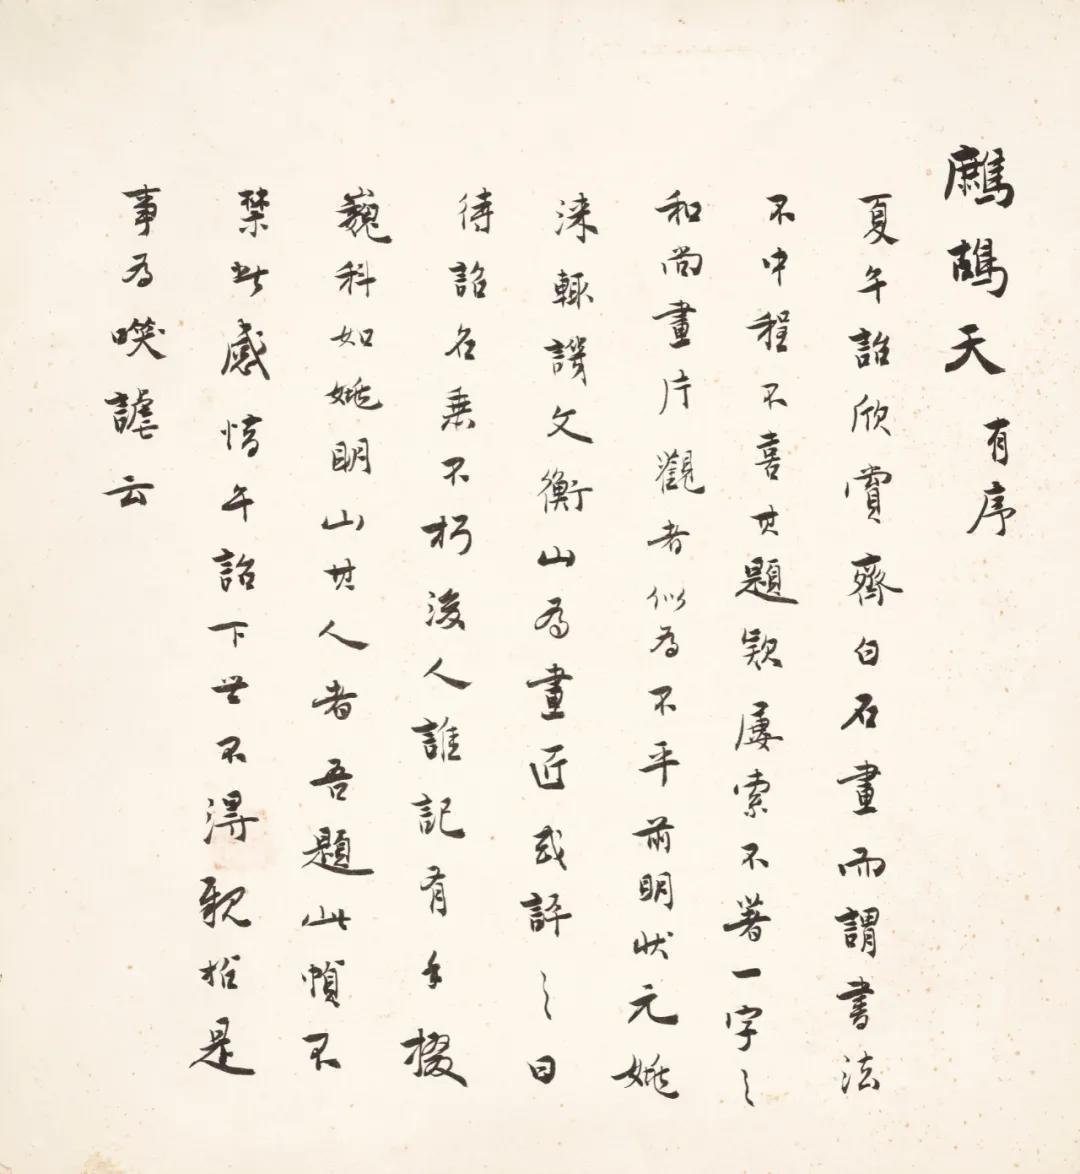 鷓鴣天 有序
夏午詒欣賞齊白石畫而謂書法
不中程不喜其題款屢索不著一字之
和尚畫片觀者似為不平前明狀元姚
淶輒譏文衡山為畫匠或評之曰
待詔名垂不朽後人誰記有手掇
巍科如姚明山其人者吾題此幀不
禁興感惜午詒下世不得親於是
事為笑謔云